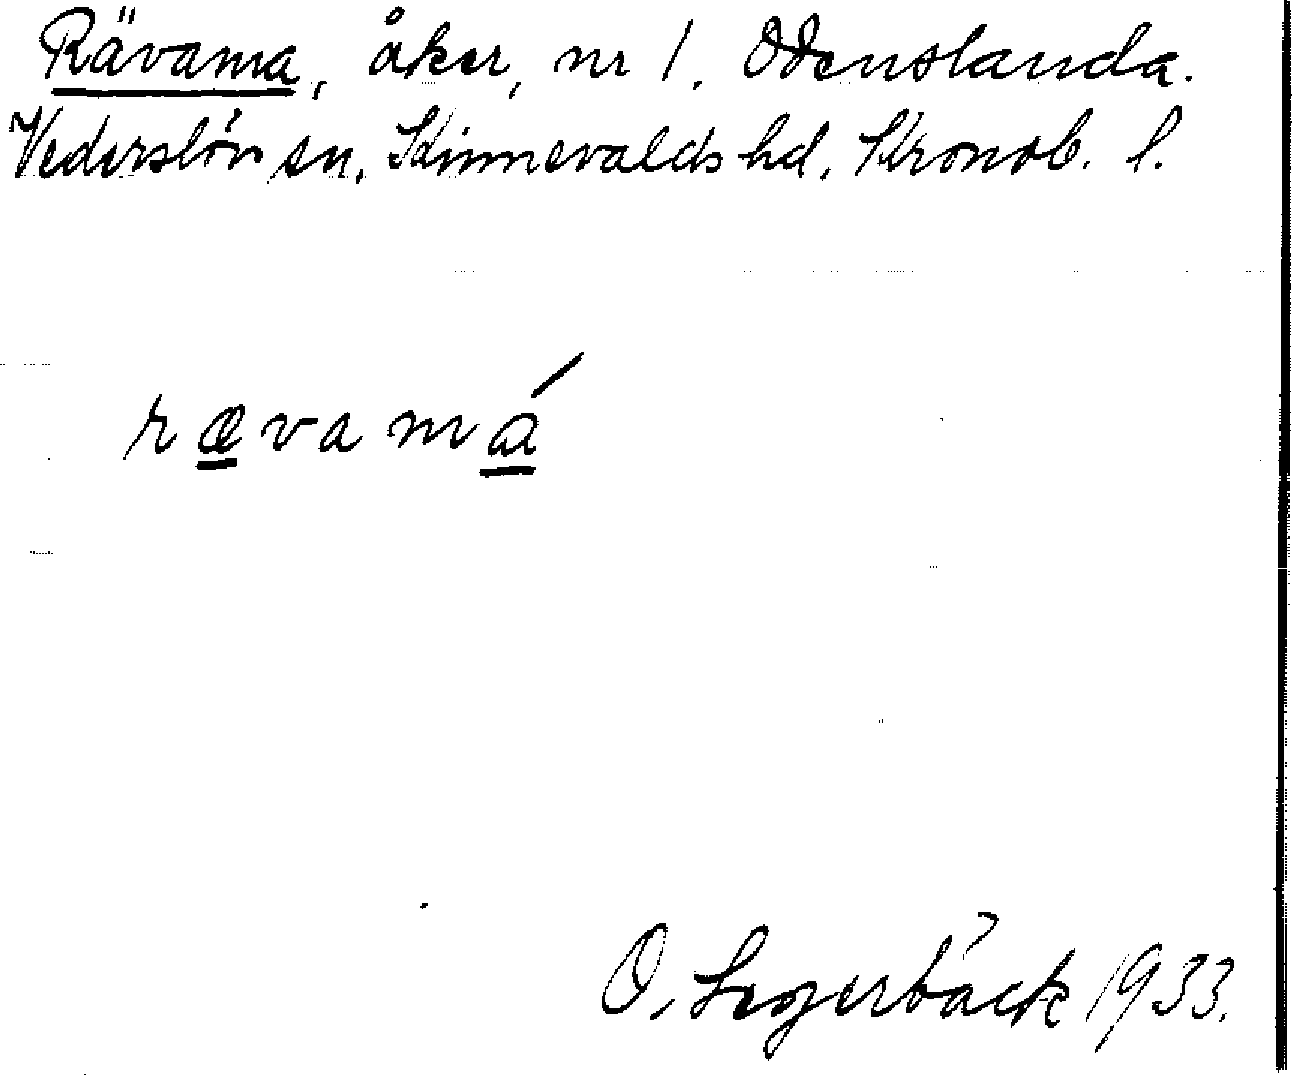 Rävama, åker, nr 1. Odenslanda.
Vederslöv sn. Kinnevalds hd. Kronob. l.
rævamá
O. Segerbäck 1933.